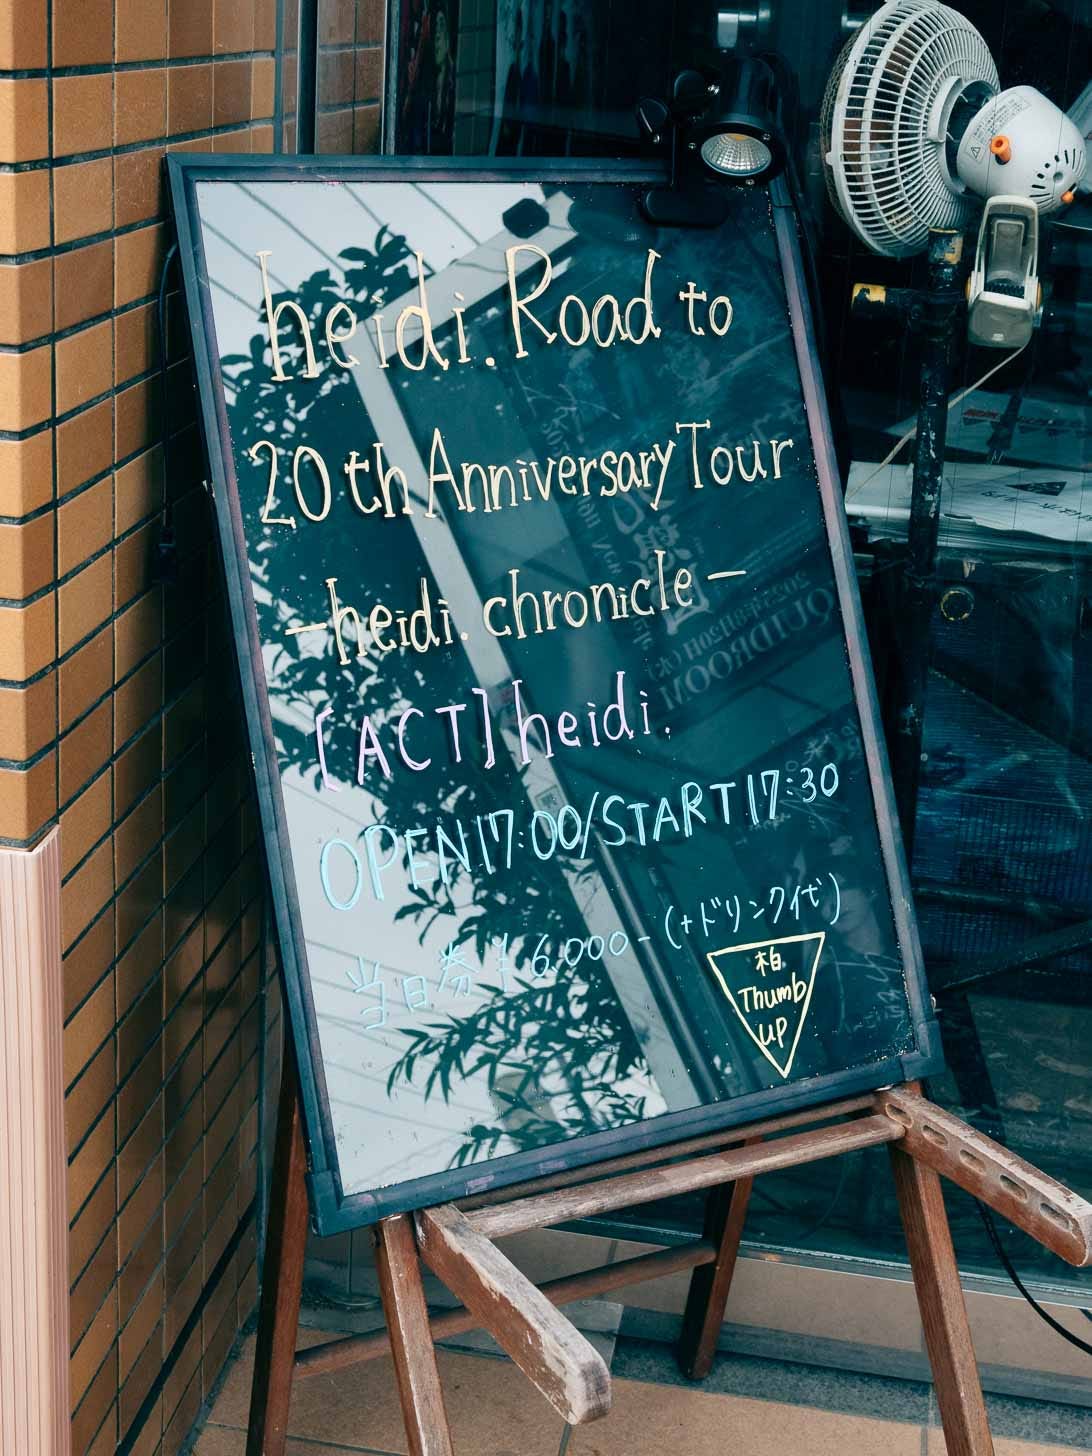 heidi. Road to
20th Anniversary Tour
－heidi. chronicle－
[ACT] heidi.
OPEN 17:00/START 17:30
当日券 ¥6,000- (+ドリンク代)
柏
Thumb
up